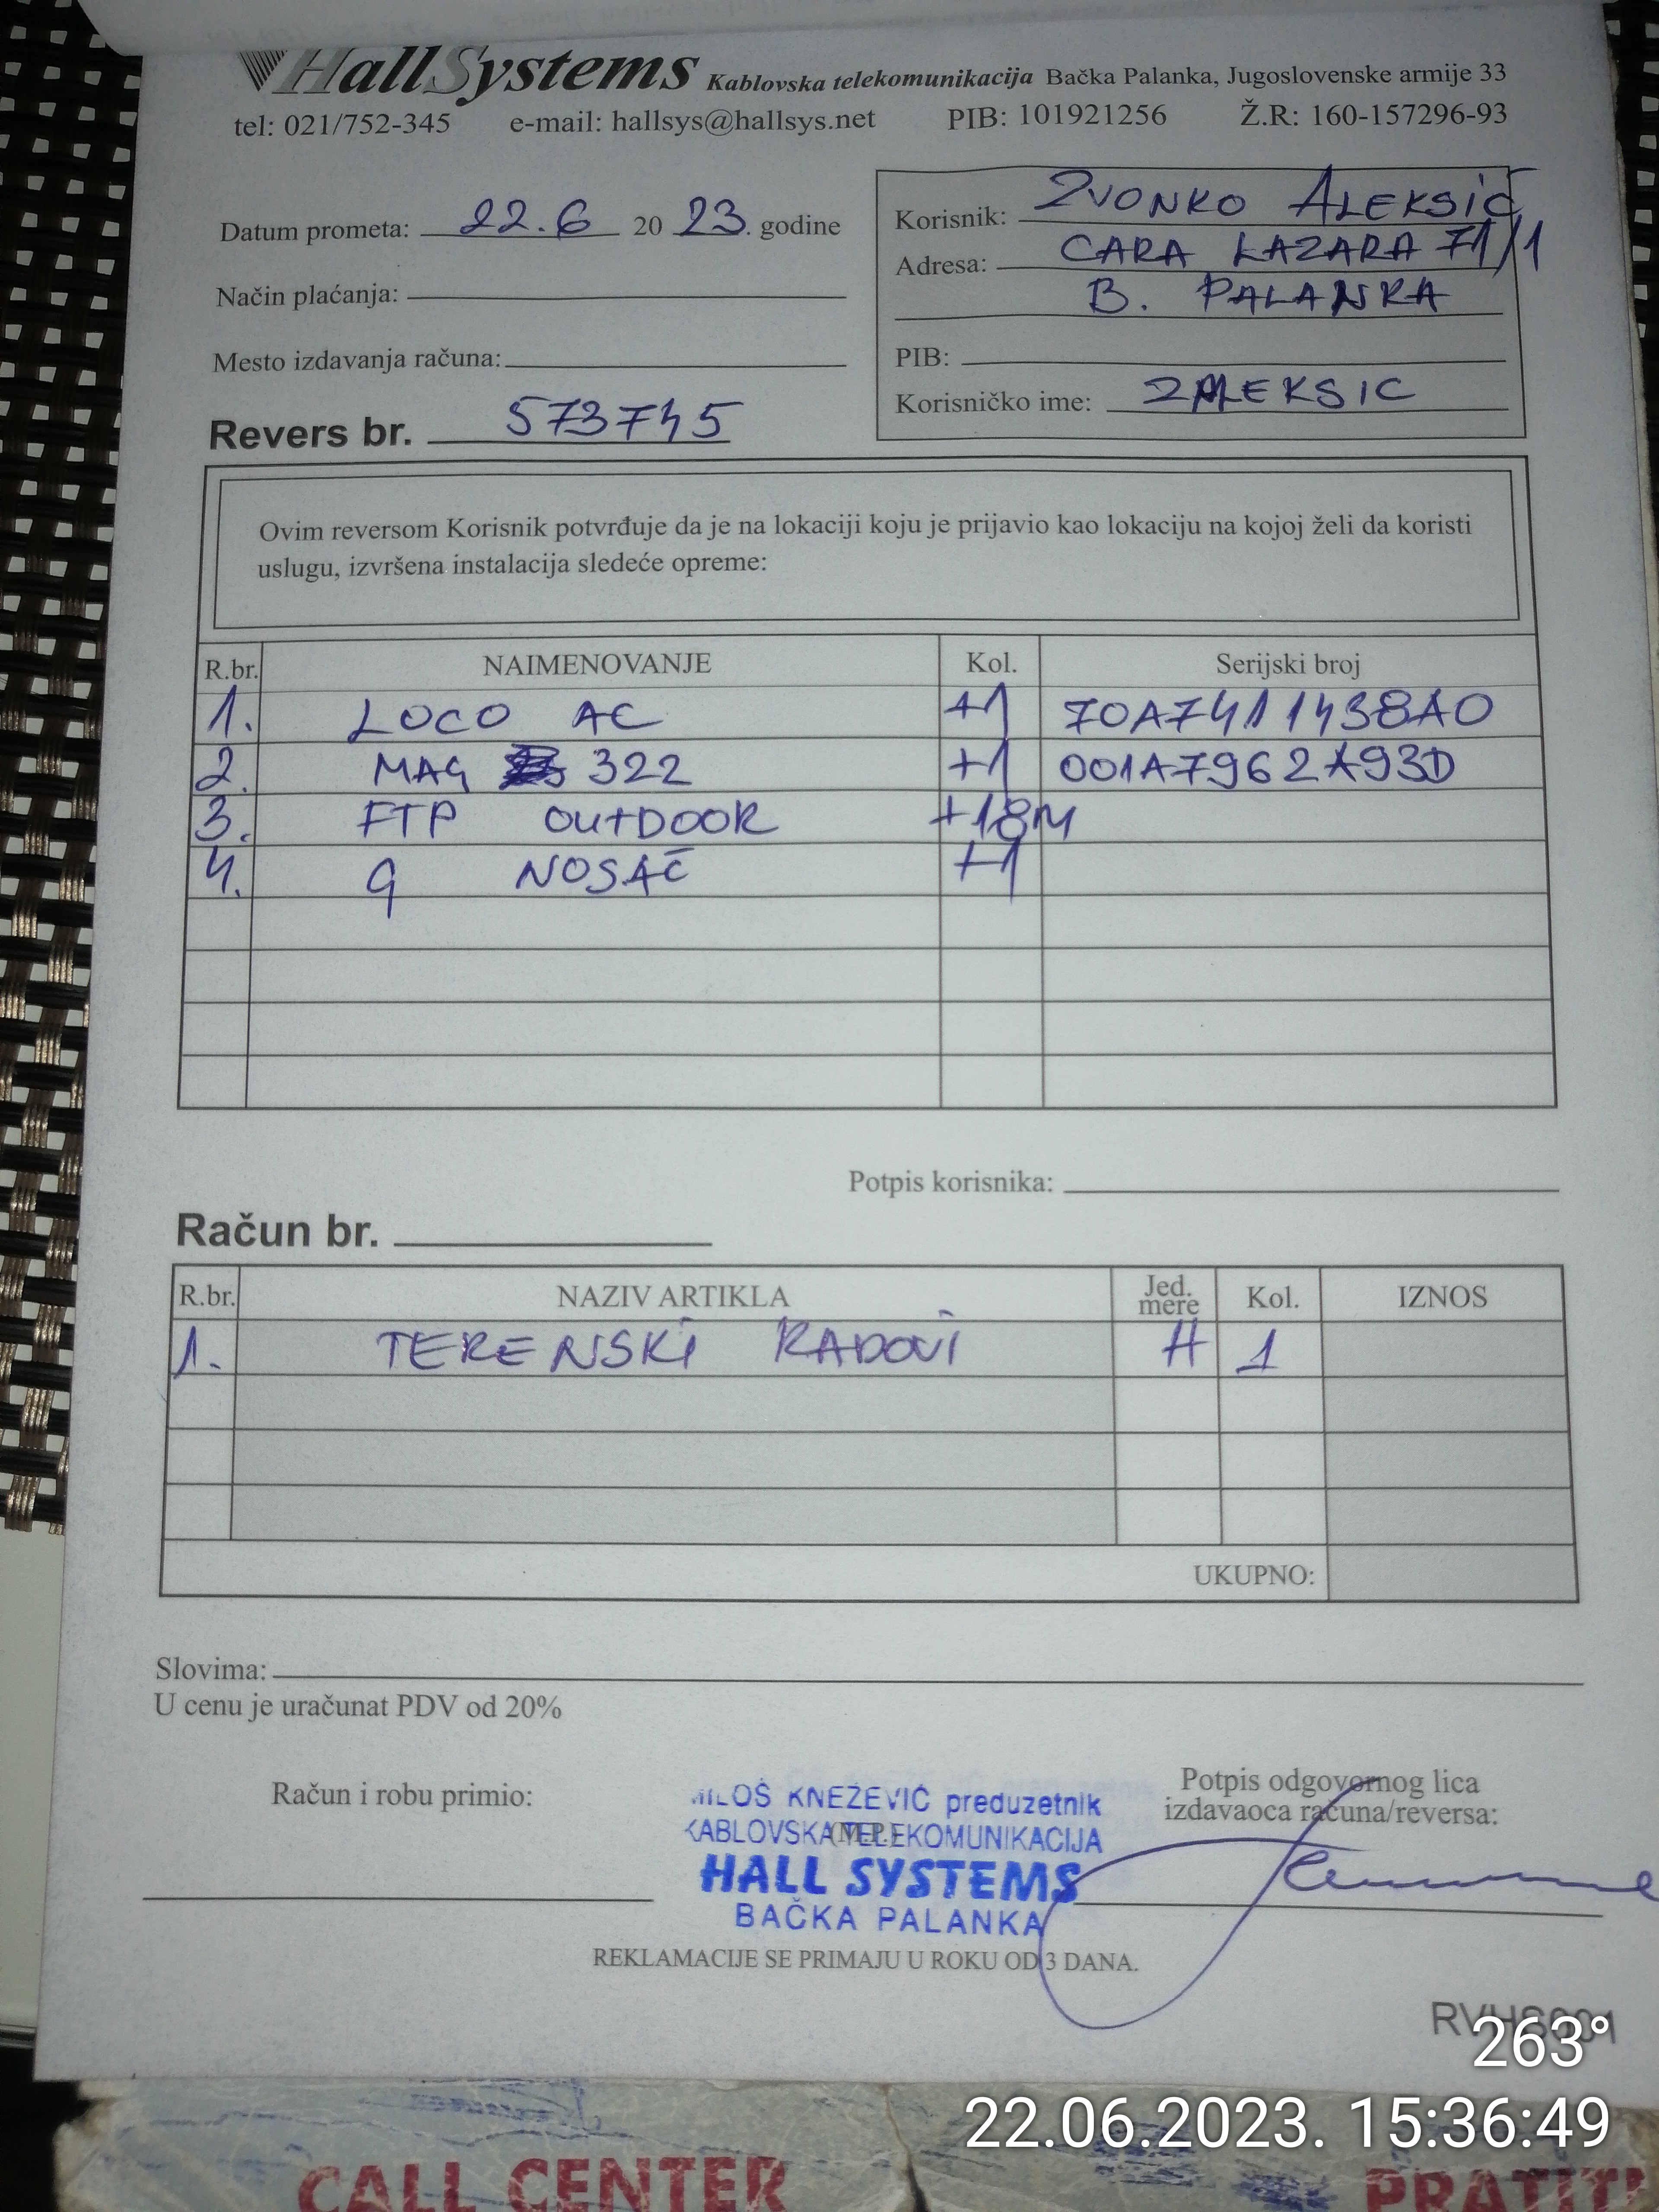 HallSystems Kablovska telekomunikacija Bačka Palanka, Jugoslovenske armije 33
tel: 021/752-345 e-mail: hallsys@hallsys.net PIB: 101921256 Ž.R: 160-157296-93
Datum prometa: 22.6 20 23. godine
Način plaćanja:
Mesto izdavanja računa:
Revers br. 573745
Korisnik: ZVONKO ALEKSIĆ
Adresa: CARA LAZARA 71/1
B. PALANKA
PIB:
Korisničko ime: ZALEKSIC
Ovim reversom Korisnik potvrđuje da je na lokaciji koju je prijavio kao lokaciju na kojoj želi da koristi
uslugu, izvršena instalacija sledeće opreme:
R.br. NAIMENOVANJE Kol. Serijski broj
1. LOCO AC +1 70A7411438A0
2. MAG 322 +1 001A7962A93D
3. FTP OUTDOOR +18M
4. g NOSAČ +1
Potpis korisnika:
Račun br.
R.br. NAZIV ARTIKLA Jed. mere Kol. IZNOS
1. TERENSKI RADOVI H 1
UKUPNO:
Slovima:
U cenu je uračunat PDV od 20%
Račun i robu primio:
MILOŠ KNEŽEVIĆ preduzetnik
KABLOVSKA TELEKOMUNIKACIJA
(M.P.)
HALL SYSTEMS
BAČKA PALANKA
Potpis odgovornog lica
izdavaoca računa/reversa:
REKLAMACIJE SE PRIMAJU U ROKU OD 3 DANA.
RVHS001
263°
22.06.2023. 15:36:49
CALL CENTER
PRATITI